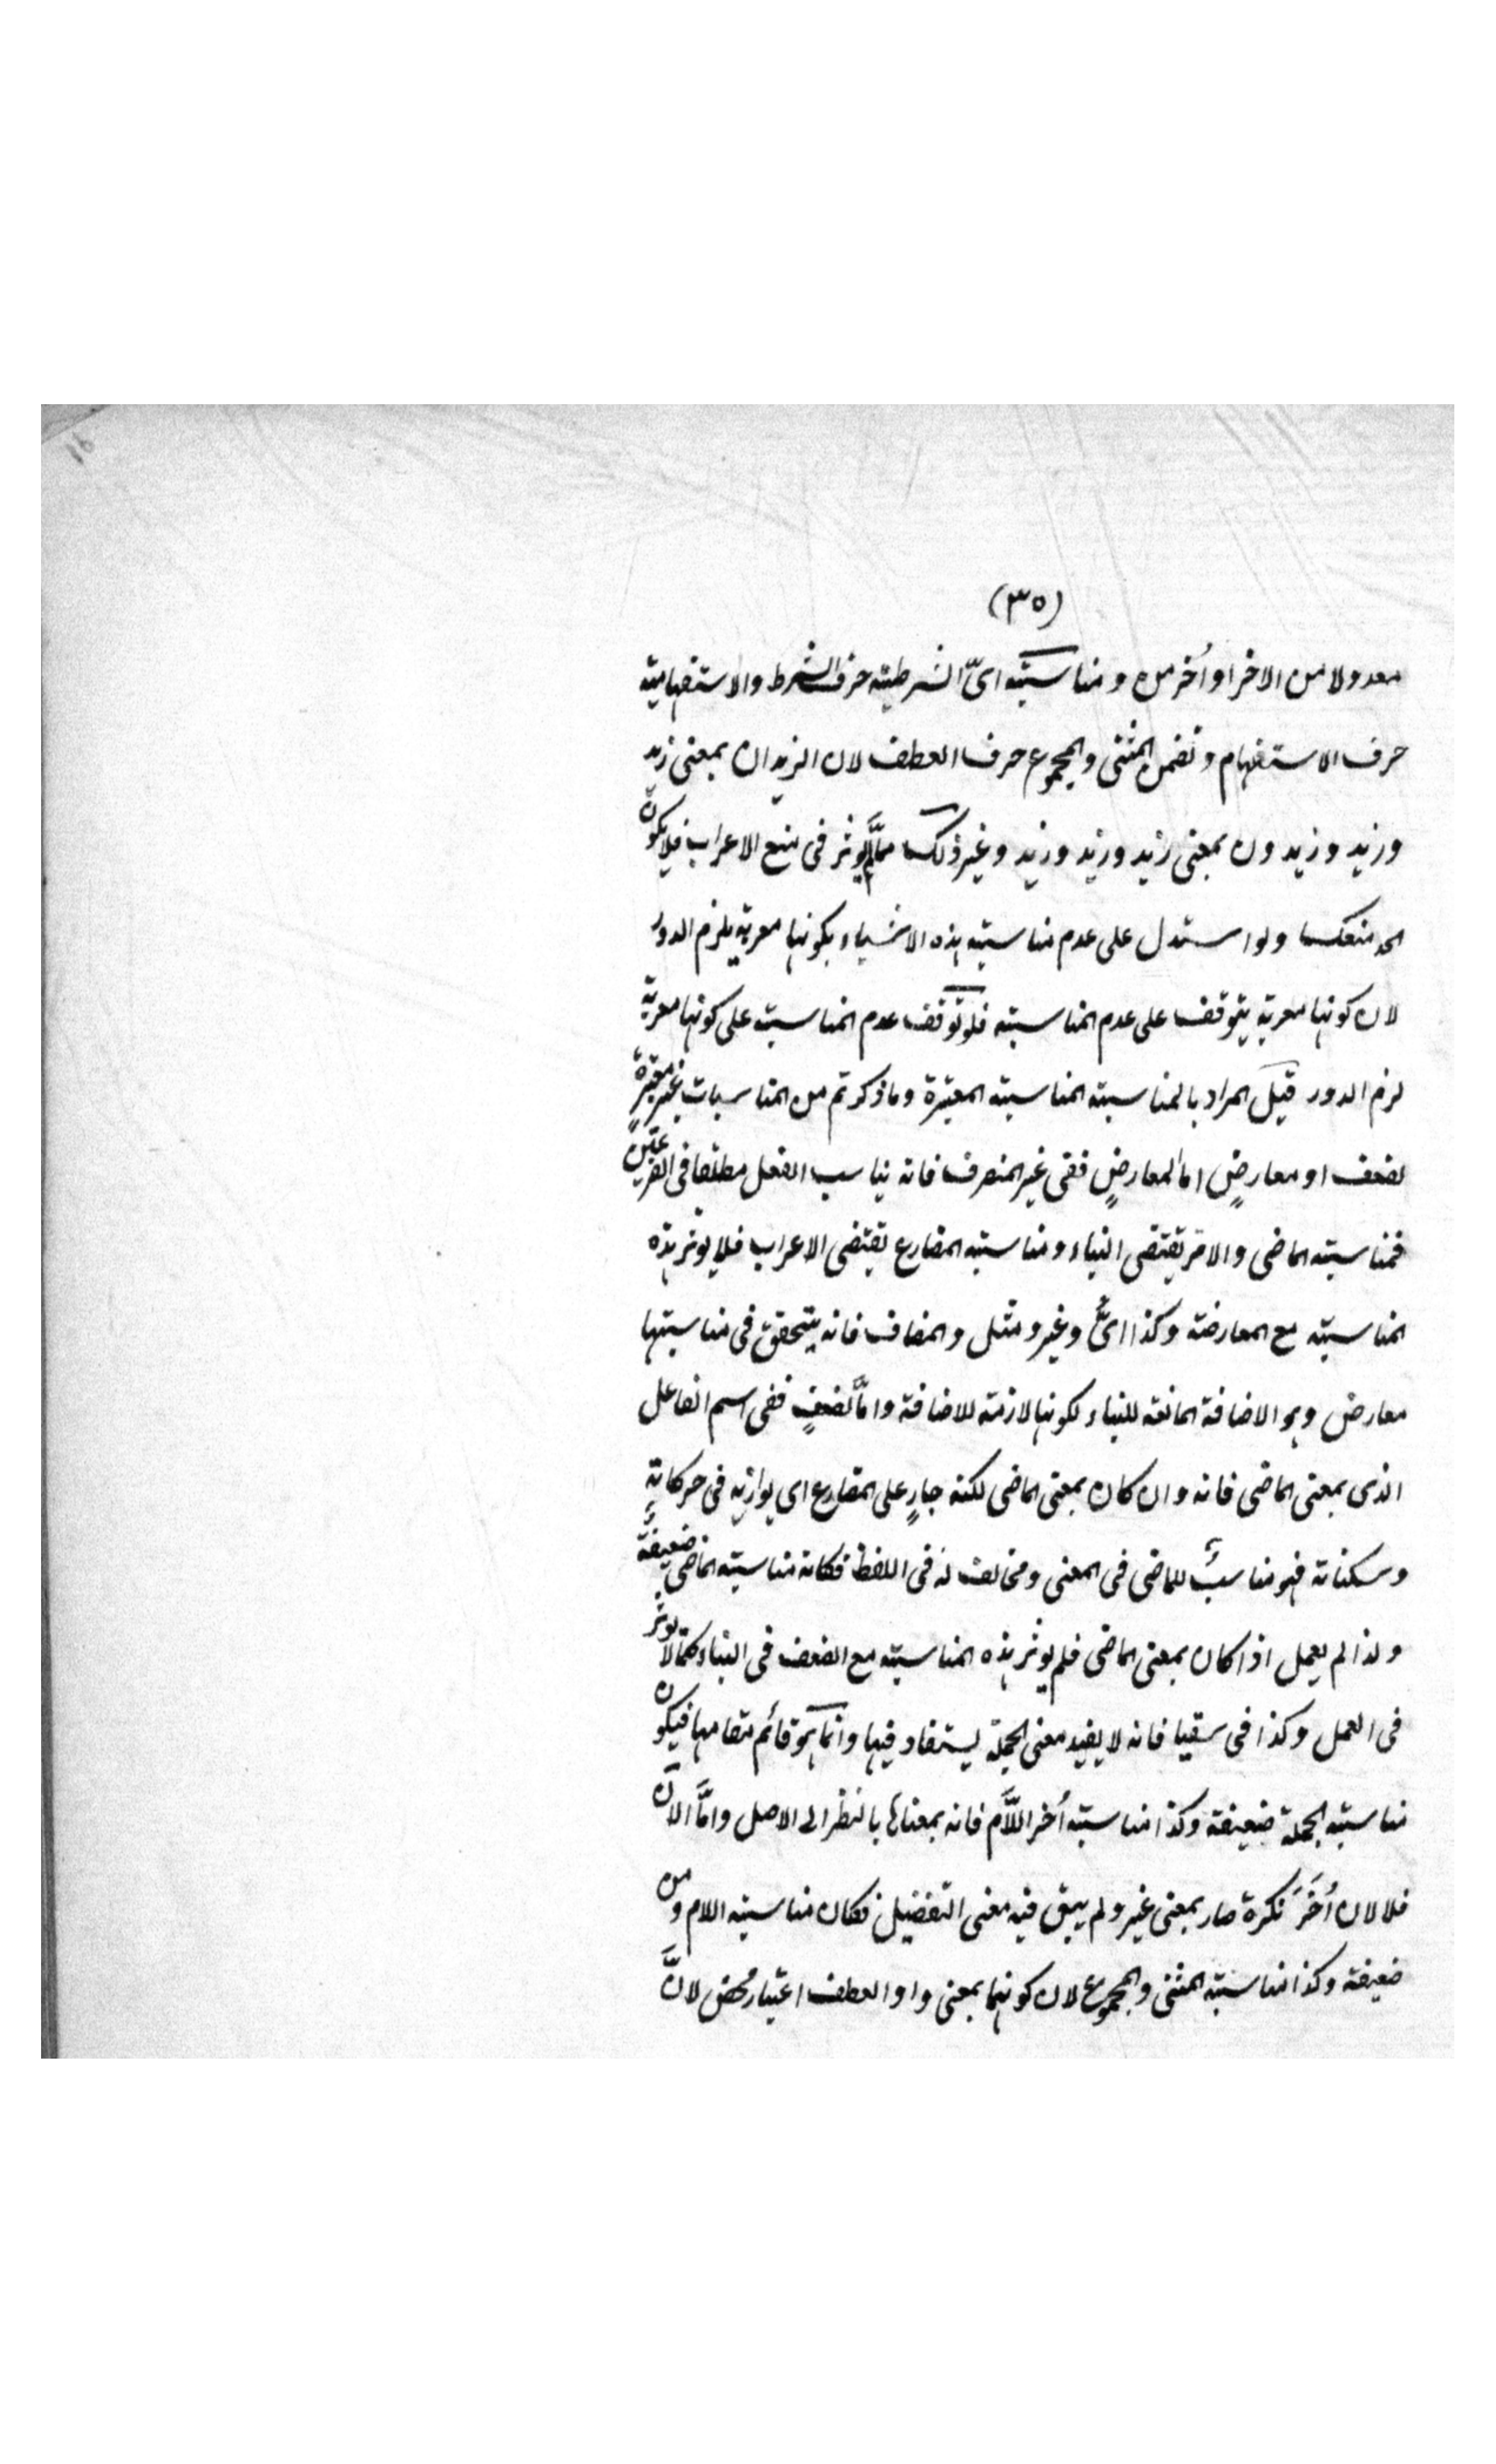 (٣٥)
معدولا من الاخر او اُخر من ومناسبته اىّ الشرطية حرف الشرط والاستفهامية
حرف الاستفهام وتضمن المثنى والمجموع حرف العطف لان الزيدان بمعنى زيد
وزيد وزيدون بمعنى زيد وزيد وزيد وغير ذلك ممّا لم يؤثر فى منع الاعراب فلا يكون
الحد منعكسا ولو استدل على عدم مناسبته هذه الاشياء بكونها معربة يلزم الدور
لان كونها معربة يتوقف على عدم المناسبته فلو توقف عدم المناسبة على كونها معربة
لزم الدور قيل المراد بالمناسبته المناسبته المعتبرة وما ذكرتم من المناسبات غير معتبرةٍ
لضعف او معارضٍ اما المعارضٍ ففى غير المنصرف فانه يناسب الفعل مطلقا فى الفرعيّين
فمناسبته الماضى والامر يقتضى البناء ومناسبته المضارع يقتضى الاعراب فلا يوثر هذه
المناسبته مع المعارضة وكذا اىٌّ وغير ومثل والمضاف فانه يتحقق فى مناسبتها
معارض وهو الاضافة المانعة للبناء لكونها لازمة للاضافة وامّا لضعفٍ ففى اسم الفاعل
الذى بمعنى الماضى فانه وان كان بمعنى الماضى لكنه جارٍ على المضارع اى يوازيه فى حركاتهٖ
وسكناته فهو مناسبٌ للماضى فى المعنى ومخالف له فى اللفظ فكانه مناسبته الماضى ضعيفةً
ولذا لم يعمل اذا كان بمعنى الماضى فلم يوثر هذه المناسبته مع الضعف فى البناء كما لا يوثر
فى العمل وكذا فى سقيا فانه لا يفيد معنى الجملة ليستفاد فيها وانما هو قائم مقامها فيكون
مناسبته الجملة ضعيفة وكذا مناسبته اُخر اللَّام فانه بمعناها بالنظر الى الاصل وامَّا الآن
فلا لان اُخَرَ نكرة صار بمعنى غير ولم يبق فيه معنى التفضيل فكان مناسبته اللام ومن
ضعيفة وكذا مناسبته المثنى والمجموع لان كونهما بمعنى واو العطف اعتبار محض لانَّ